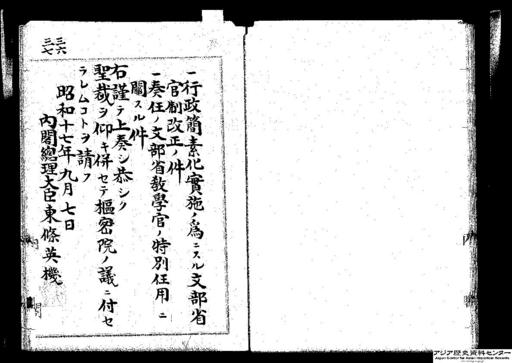 一行政簡素化實施ノ爲ニスル文部省
官制改正ノ件
一奏任ノ文部省敎學官ノ特別任用ニ
關スル件
右謹テ上奏シ恭シク
聖裁ヲ仰キ併セテ樞密院ノ議ニ付セ
ラレムコトヲ請フ
昭和十七年九月七日
內閣總理大臣東條英機
アジア歴史資料センター
Japan Center for Asian Historical Records